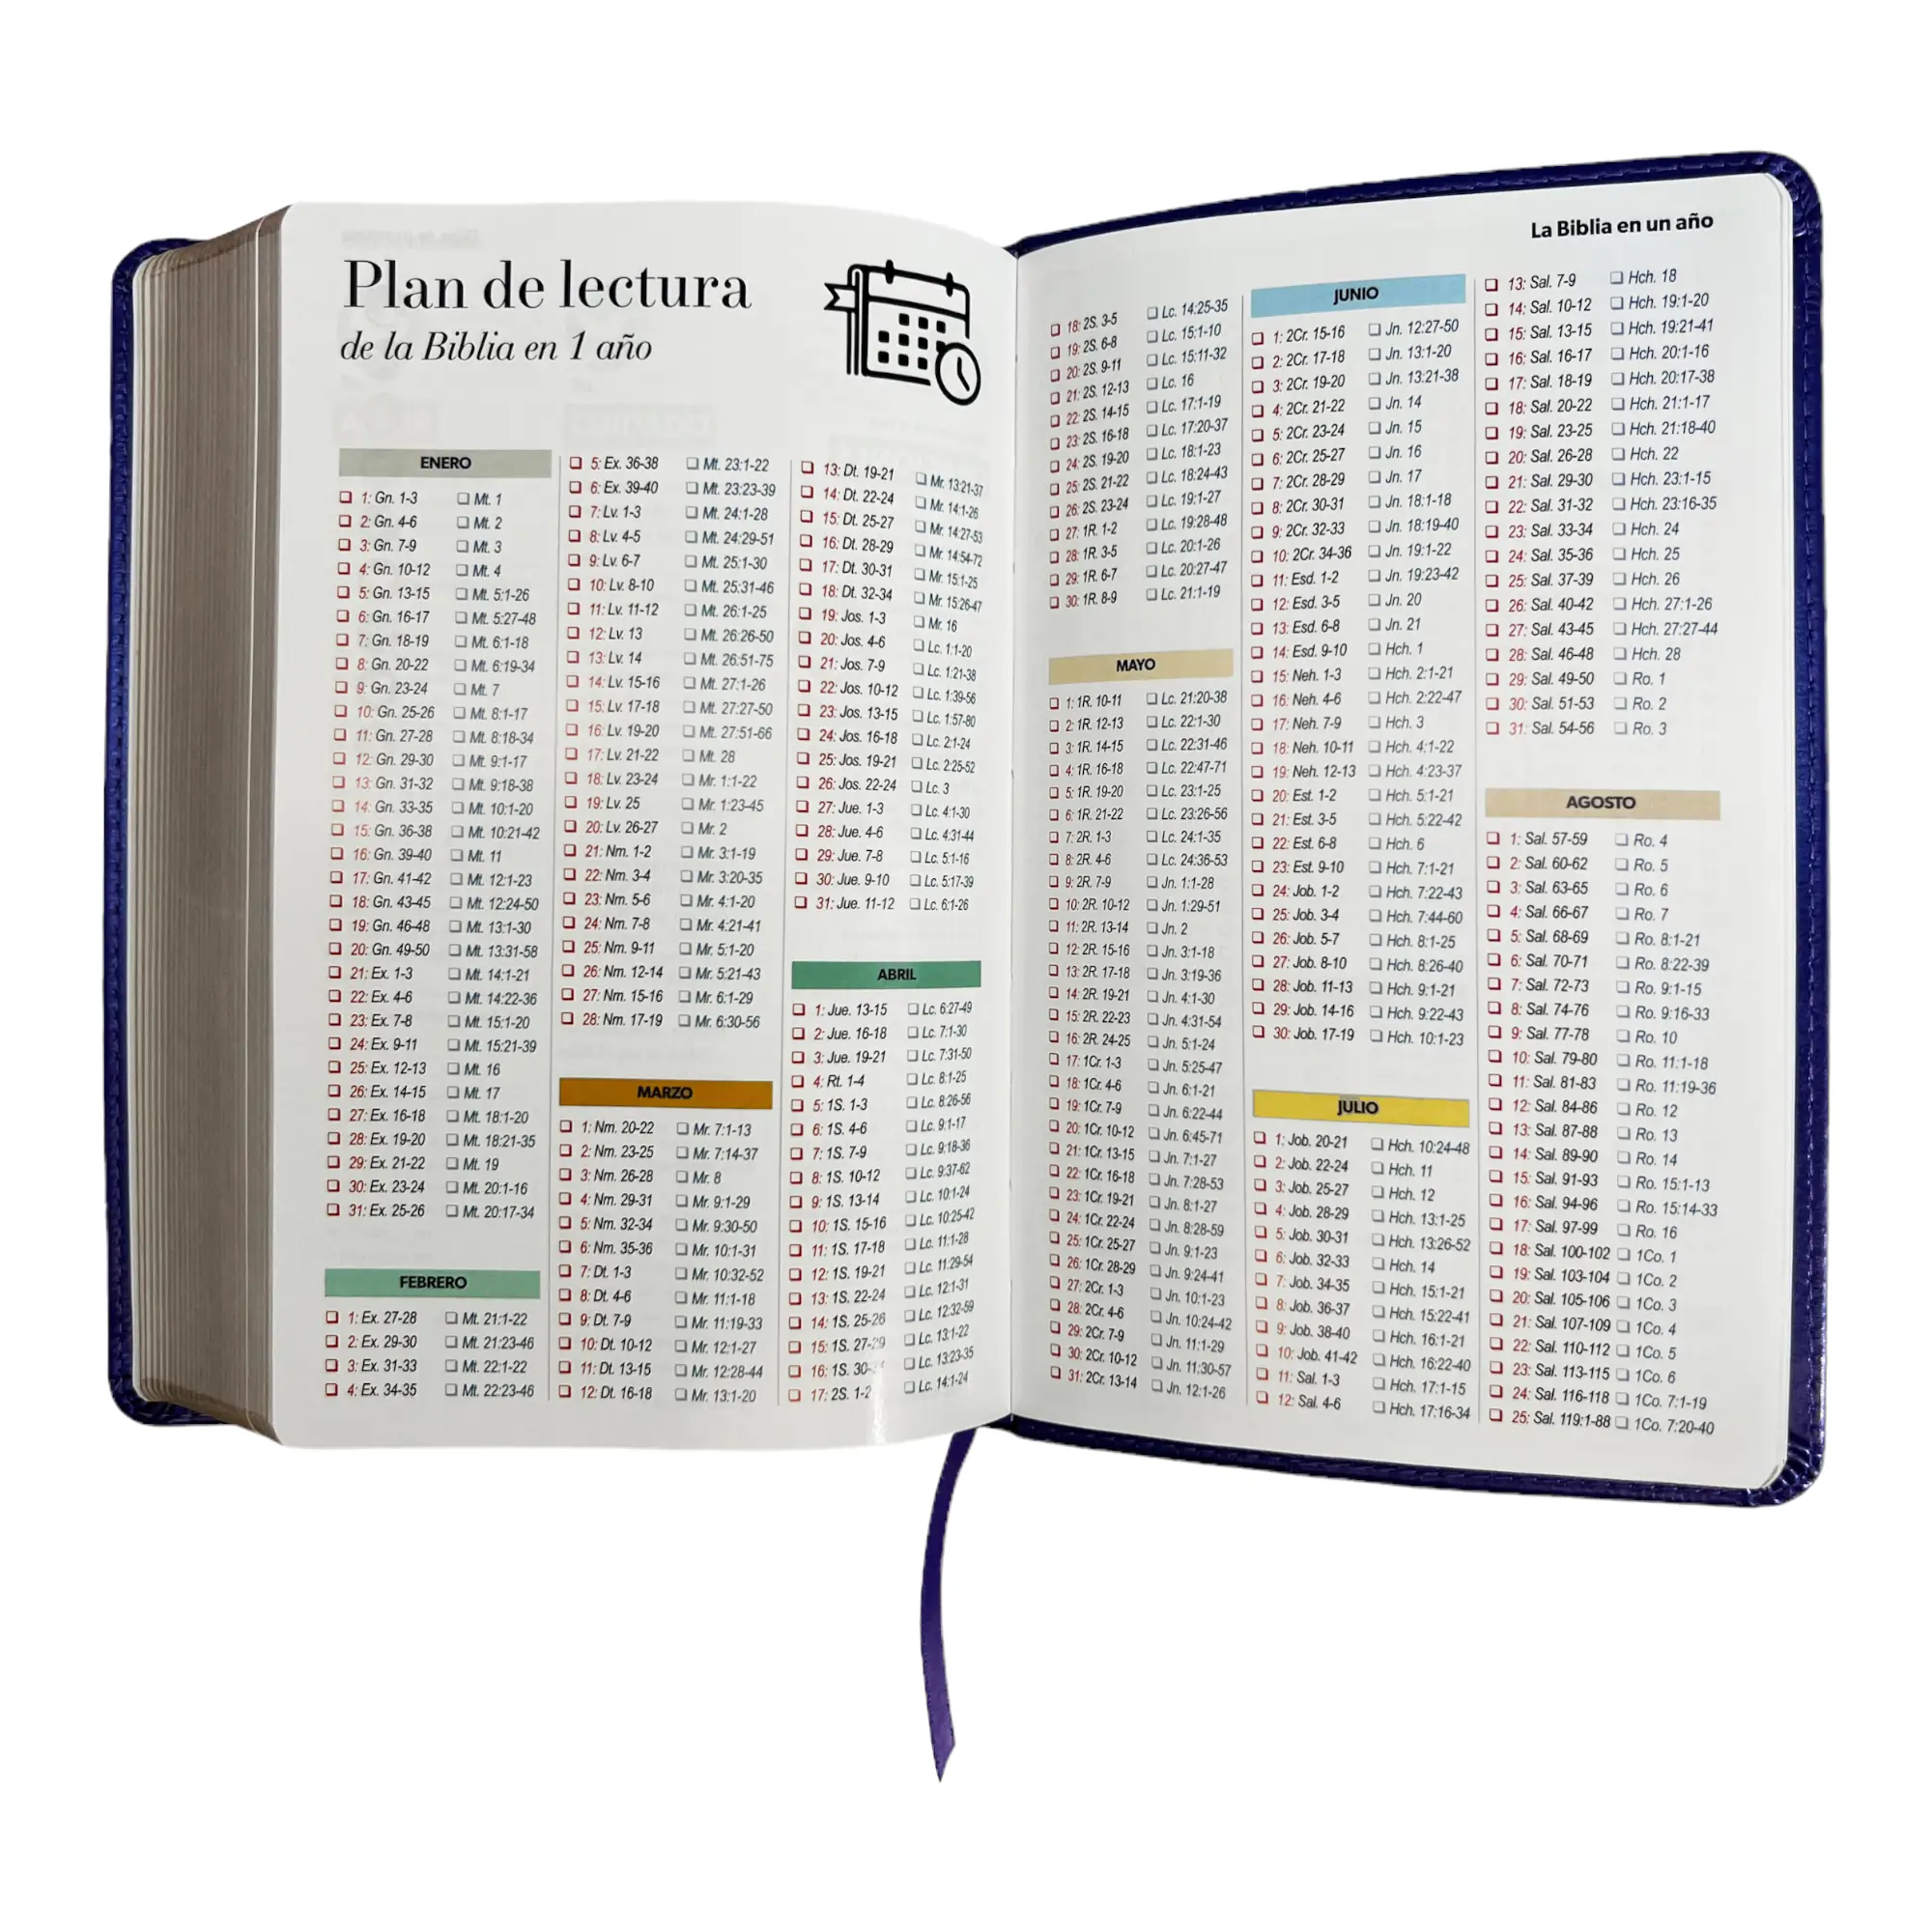 Plan de lectura
de la Biblia en 1 año
ENERO
1: Gn. 1-3 Mt. 1
2: Gn. 4-6 Mt. 2
3: Gn. 7-9 Mt. 3
4: Gn. 10-12 Mt. 4
5: Gn. 13-15 Mt. 5:1-26
6: Gn. 16-17 Mt. 5:27-48
7: Gn. 18-19 Mt. 6:1-18
8: Gn. 20-22 Mt. 6:19-34
9: Gn. 23-24 Mt. 7
10: Gn. 25-26 Mt. 8:1-17
11: Gn. 27-28 Mt. 8:18-34
12: Gn. 29-30 Mt. 9:1-17
13: Gn. 31-32 Mt. 9:18-38
14: Gn. 33-35 Mt. 10:1-20
15: Gn. 36-38 Mt. 10:21-42
16: Gn. 39-40 Mt. 11
17: Gn. 41-42 Mt. 12:1-23
18: Gn. 43-45 Mt. 12:24-50
19: Gn. 46-48 Mt. 13:1-30
20: Gn. 49-50 Mt. 13:31-58
21: Ex. 1-3 Mt. 14:1-21
22: Ex. 4-6 Mt. 14:22-36
23: Ex. 7-8 Mt. 15:1-20
24: Ex. 9-11 Mt. 15:21-39
25: Ex. 12-13 Mt. 16
26: Ex. 14-15 Mt. 17
27: Ex. 16-18 Mt. 18:1-20
28: Ex. 19-20 Mt. 18:21-35
29: Ex. 21-22 Mt. 19
30: Ex. 23-24 Mt. 20:1-16
31: Ex. 25-26 Mt. 20:17-34
FEBRERO
1: Ex. 27-28 Mt. 21:1-22
2: Ex. 29-30 Mt. 21:23-46
3: Ex. 31-33 Mt. 22:1-22
4: Ex. 34-35 Mt. 22:23-46
5: Ex. 36-38 Mt. 23:1-22
6: Ex. 39-40 Mt. 23:23-39
7: Lv. 1-3 Mt. 24:1-28
8: Lv. 4-5 Mt. 24:29-51
9: Lv. 6-7 Mt. 25:1-30
10: Lv. 8-10 Mt. 25:31-46
11: Lv. 11-12 Mt. 26:1-25
12: Lv. 13 Mt. 26:26-50
13: Lv. 14 Mt. 26:51-75
14: Lv. 15-16 Mt. 27:1-26
15: Lv. 17-18 Mt. 27:27-50
16: Lv. 19-20 Mt. 27:51-66
17: Lv. 21-22 Mt. 28
18: Lv. 23-24 Mr. 1:1-22
19: Lv. 25 Mr. 1:23-45
20: Lv. 26-27 Mr. 2
21: Nm. 1-2 Mr. 3:1-19
22: Nm. 3-4 Mr. 3:20-35
23: Nm. 5-6 Mr. 4:1-20
24: Nm. 7-8 Mr. 4:21-41
25: Nm. 9-11 Mr. 5:1-20
26: Nm. 12-14 Mr. 5:21-43
27: Nm. 15-16 Mr. 6:1-29
28: Nm. 17-19 Mr. 6:30-56
MARZO
1: Nm. 20-22 Mr. 7:1-13
2: Nm. 23-25 Mr. 7:14-37
3: Nm. 26-28 Mr. 8
4: Nm. 29-31 Mr. 9:1-29
5: Nm. 32-34 Mr. 9:30-50
6: Nm. 35-36 Mr. 10:1-31
7: Dt. 1-3 Mr. 10:32-52
8: Dt. 4-6 Mr. 11:1-18
9: Dt. 7-9 Mr. 11:19-33
10: Dt. 10-12 Mr. 12:1-27
11: Dt. 13-15 Mr. 12:28-44
12: Dt. 16-18 Mr. 13:1-20
13: Dt. 19-21 Mr. 13:21-37
14: Dt. 22-24 Mr. 14:1-26
15: Dt. 25-27 Mr. 14:27-53
16: Dt. 28-29 Mr. 14:54-72
17: Dt. 30-31 Mr. 15:1-25
18: Dt. 32-34 Mr. 15:26-47
19: Jos. 1-3 Mr. 16
20: Jos. 4-6 Lc. 1:1-20
21: Jos. 7-9 Lc. 1:21-38
22: Jos. 10-12 Lc. 1:39-56
23: Jos. 13-15 Lc. 1:57-80
24: Jos. 16-18 Lc. 2:1-24
25: Jos. 19-21 Lc. 2:25-52
26: Jos. 22-24 Lc. 3
27: Jue. 1-3 Lc. 4:1-30
28: Jue. 4-6 Lc. 4:31-44
29: Jue. 7-8 Lc. 5:1-16
30: Jue. 9-10 Lc. 5:17-39
31: Jue. 11-12 Lc. 6:1-26
ABRIL
1: Jue. 13-15 Lc. 6:27-49
2: Jue. 16-18 Lc. 7:1-30
3: Jue. 19-21 Lc. 7:31-50
4: Rt. 1-4 Lc. 8:1-25
5: 1S. 1-3 Lc. 8:26-56
6: 1S. 4-6 Lc. 9:1-17
7: 1S. 7-9 Lc. 9:18-36
8: 1S. 10-12 Lc. 9:37-62
9: 1S. 13-14 Lc. 10:1-24
10: 1S. 15-16 Lc. 10:25-42
11: 1S. 17-18 Lc. 11:1-28
12: 1S. 19-21 Lc. 11:29-54
13: 1S. 22-24 Lc. 12:1-31
14: 1S. 25-26 Lc. 12:32-59
15: 1S. 27-29 Lc. 13:1-22
16: 1S. Lc. 13:23-35
17: 2S. 1-2 Lc. 14:1-24
La Biblia en un año
18: 2S. 3-5 Lc. 14:25-35
19: 2S. 6-8 Lc. 15:1-10
20: 2S. 9-11 Lc. 15:11-32
21: 2S. 12-13 Lc. 16
22: 2S. 14-15 Lc. 17:1-19
23: 2S. 16-18 Lc. 17:20-37
24: 2S. 19-20 Lc. 18:1-23
25: 2S. 21-22 Lc. 18:24-43
26: 2S. 23-24 Lc. 19:1-27
27: 1R. 1-2 Lc. 19:28-48
28: 1R. 3-5 Lc. 20:1-26
29: 1R. 6-7 Lc. 20:27-47
30: 1R. 8-9 Lc. 21:1-19
MAYO
1: 1R. 10-11 Lc. 21:20-38
2: 1R. 12-13 Lc. 22:1-30
3: 1R. 14-15 Lc. 22:31-46
4: 1R. 16-18 Lc. 22:47-71
5: 1R. 19-20 Lc. 23:1-25
6: 1R. 21-22 Lc. 23:26-56
7: 2R. 1-3 Lc. 24:1-35
8: 2R. 4-6 Lc. 24:36-53
9: 2R. 7-9 Jn. 1:1-28
10: 2R. 10-12 Jn. 1:29-51
11: 2R. 13-14 Jn. 2
12: 2R. 15-16 Jn. 3:1-18
13: 2R. 17-18 Jn. 3:19-36
14: 2R. 19-21 Jn. 4:1-30
15: 2R. 22-23 Jn. 4:31-54
16: 2R. 24-25 Jn. 5:1-24
17: 1Cr. 1-3 Jn. 5:25-47
18: 1Cr. 4-6 Jn. 6:1-21
19: 1Cr. 7-9 Jn. 6:22-44
20: 1Cr. 10-12 Jn. 6:45-71
21: 1Cr. 13-15 Jn. 7:1-27
22: 1Cr. 16-18 Jn. 7:28-53
23: 1Cr. 19-21 Jn. 8:1-27
24: 1Cr. 22-24 Jn. 8:28-59
25: 1Cr. 25-27 Jn. 9:1-23
26: 1Cr. 28-29 Jn. 9:24-41
27: 2Cr. 1-3 Jn. 10:1-23
28: 2Cr. 4-6 Jn. 10:24-42
29: 2Cr. 7-9 Jn. 11:1-29
30: 2Cr. 10-12 Jn. 11:30-57
31: 2Cr. 13-14 Jn. 12:1-26
JUNIO
1: 2Cr. 15-16 Jn. 12:27-50
2: 2Cr. 17-18 Jn. 13:1-20
3: 2Cr. 19-20 Jn. 13:21-38
4: 2Cr. 21-22 Jn. 14
5: 2Cr. 23-24 Jn. 15
6: 2Cr. 25-27 Jn. 16
7: 2Cr. 28-29 Jn. 17
8: 2Cr. 30-31 Jn. 18:1-18
9: 2Cr. 32-33 Jn. 18:19-40
10: 2Cr. 34-36 Jn. 19:1-22
11: Esd. 1-2 Jn. 19:23-42
12: Esd. 3-5 Jn. 20
13: Esd. 6-8 Jn. 21
14: Esd. 9-10 Hch. 1
15: Neh. 1-3 Hch. 2:1-21
16: Neh. 4-6 Hch. 2:22-47
17: Neh. 7-9 Hch. 3
18: Neh. 10-11 Hch. 4:1-22
19: Neh. 12-13 Hch. 4:23-37
20: Est. 1-2 Hch. 5:1-21
21: Est. 3-5 Hch. 5:22-42
22: Est. 6-8 Hch. 6
23: Est. 9-10 Hch. 7:1-21
24: Job. 1-2 Hch. 7:22-43
25: Job. 3-4 Hch. 7:44-60
26: Job. 5-7 Hch. 8:1-25
27: Job. 8-10 Hch. 8:26-40
28: Job. 11-13 Hch. 9:1-21
29: Job. 14-16 Hch. 9:22-43
30: Job. 17-19 Hch. 10:1-23
JULIO
1: Job. 20-21 Hch. 10:24-48
2: Job. 22-24 Hch. 11
3: Job. 25-27 Hch. 12
4: Job. 28-29 Hch. 13:1-25
5: Job. 30-31 Hch. 13:26-52
6: Job. 32-33 Hch. 14
7: Job. 34-35 Hch. 15:1-21
8: Job. 36-37 Hch. 15:22-41
9: Job. 38-40 Hch. 16:1-21
10: Job. 41-42 Hch. 16:22-40
11: Sal. 1-3 Hch. 17:1-15
12: Sal. 4-6 Hch. 17:16-34
13: Sal. 7-9 Hch. 18
14: Sal. 10-12 Hch. 19:1-20
15: Sal. 13-15 Hch. 19:21-41
16: Sal. 16-17 Hch. 20:1-16
17: Sal. 18-19 Hch. 20:17-38
18: Sal. 20-22 Hch. 21:1-17
19: Sal. 23-25 Hch. 21:18-40
20: Sal. 26-28 Hch. 22
21: Sal. 29-30 Hch. 23:1-15
22: Sal. 31-32 Hch. 23:16-35
23: Sal. 33-34 Hch. 24
24: Sal. 35-36 Hch. 25
25: Sal. 37-39 Hch. 26
26: Sal. 40-42 Hch. 27:1-26
27: Sal. 43-45 Hch. 27:27-44
28: Sal. 46-48 Hch. 28
29: Sal. 49-50 Ro. 1
30: Sal. 51-53 Ro. 2
31: Sal. 54-56 Ro. 3
AGOSTO
1: Sal. 57-59 Ro. 4
2: Sal. 60-62 Ro. 5
3: Sal. 63-65 Ro. 6
4: Sal. 66-67 Ro. 7
5: Sal. 68-69 Ro. 8:1-21
6: Sal. 70-71 Ro. 8:22-39
7: Sal. 72-73 Ro. 9:1-15
8: Sal. 74-76 Ro. 9:16-33
9: Sal. 77-78 Ro. 10
10: Sal. 79-80 Ro. 11:1-18
11: Sal. 81-83 Ro. 11:19-36
12: Sal. 84-86 Ro. 12
13: Sal. 87-88 Ro. 13
14: Sal. 89-90 Ro. 14
15: Sal. 91-93 Ro. 15:1-13
16: Sal. 94-96 Ro. 15:14-33
17: Sal. 97-99 Ro. 16
18: Sal. 100-102 1Co. 1
19: Sal. 103-104 1Co. 2
20: Sal. 105-106 1Co. 3
21: Sal. 107-109 1Co. 4
22: Sal. 110-112 1Co. 5
23: Sal. 113-115 1Co. 6
24: Sal. 116-118 1Co. 7:1-19
25: Sal. 119:1-88 1Co. 7:20-40